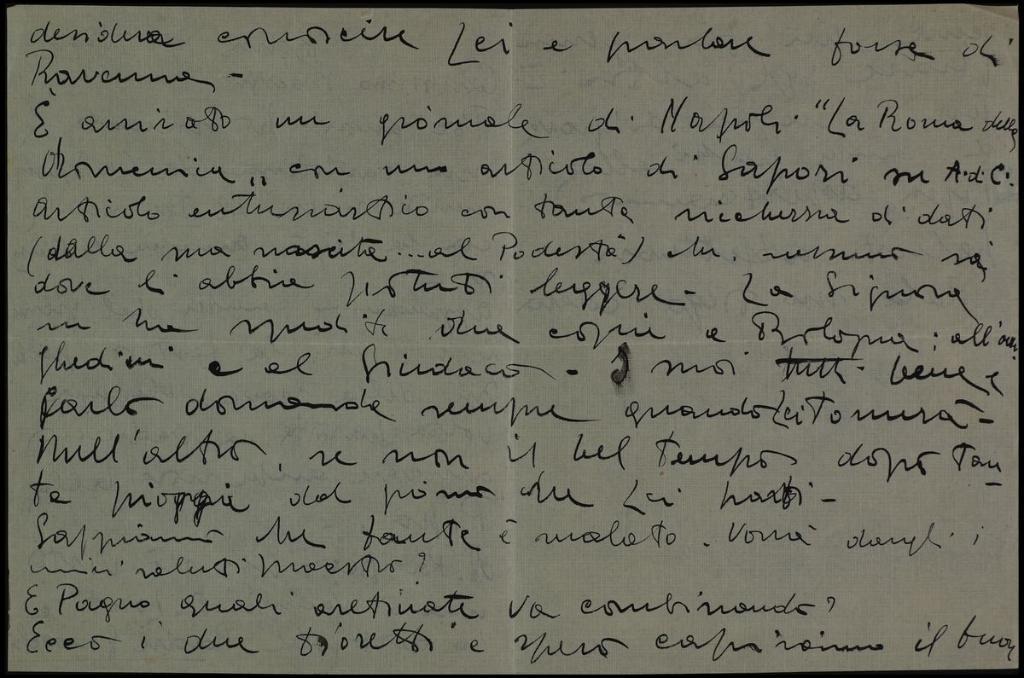 desidera conoscere Lei e parlare forse di
Ravenna -
È arrivato un giornale di Napoli "La Roma della
Domenica„ con un articolo di Sapori su A. d. C.
Articolo entusiastico con tanta ricchezza di dati
(dalla sua nascita... al Podestà) che, nessuno sà
dove li abbia potuti leggere - La Signora
ne ha spedite due copie a Bologna: all'
Ghedini e al Sindaco - I suoi tutti bene e
Paolo domanda sempre quando Lei tornerà -
Null'altro, se non il bel tempo dopo tan
ta pioggia dal giorno che Lei partì -
Sappiamo che è malato. Vorrà dargli i
miei saluti Maestro?
E Pagno quali aretinate va combinando?
Ecco i due fioretti e spero capiranno il buon